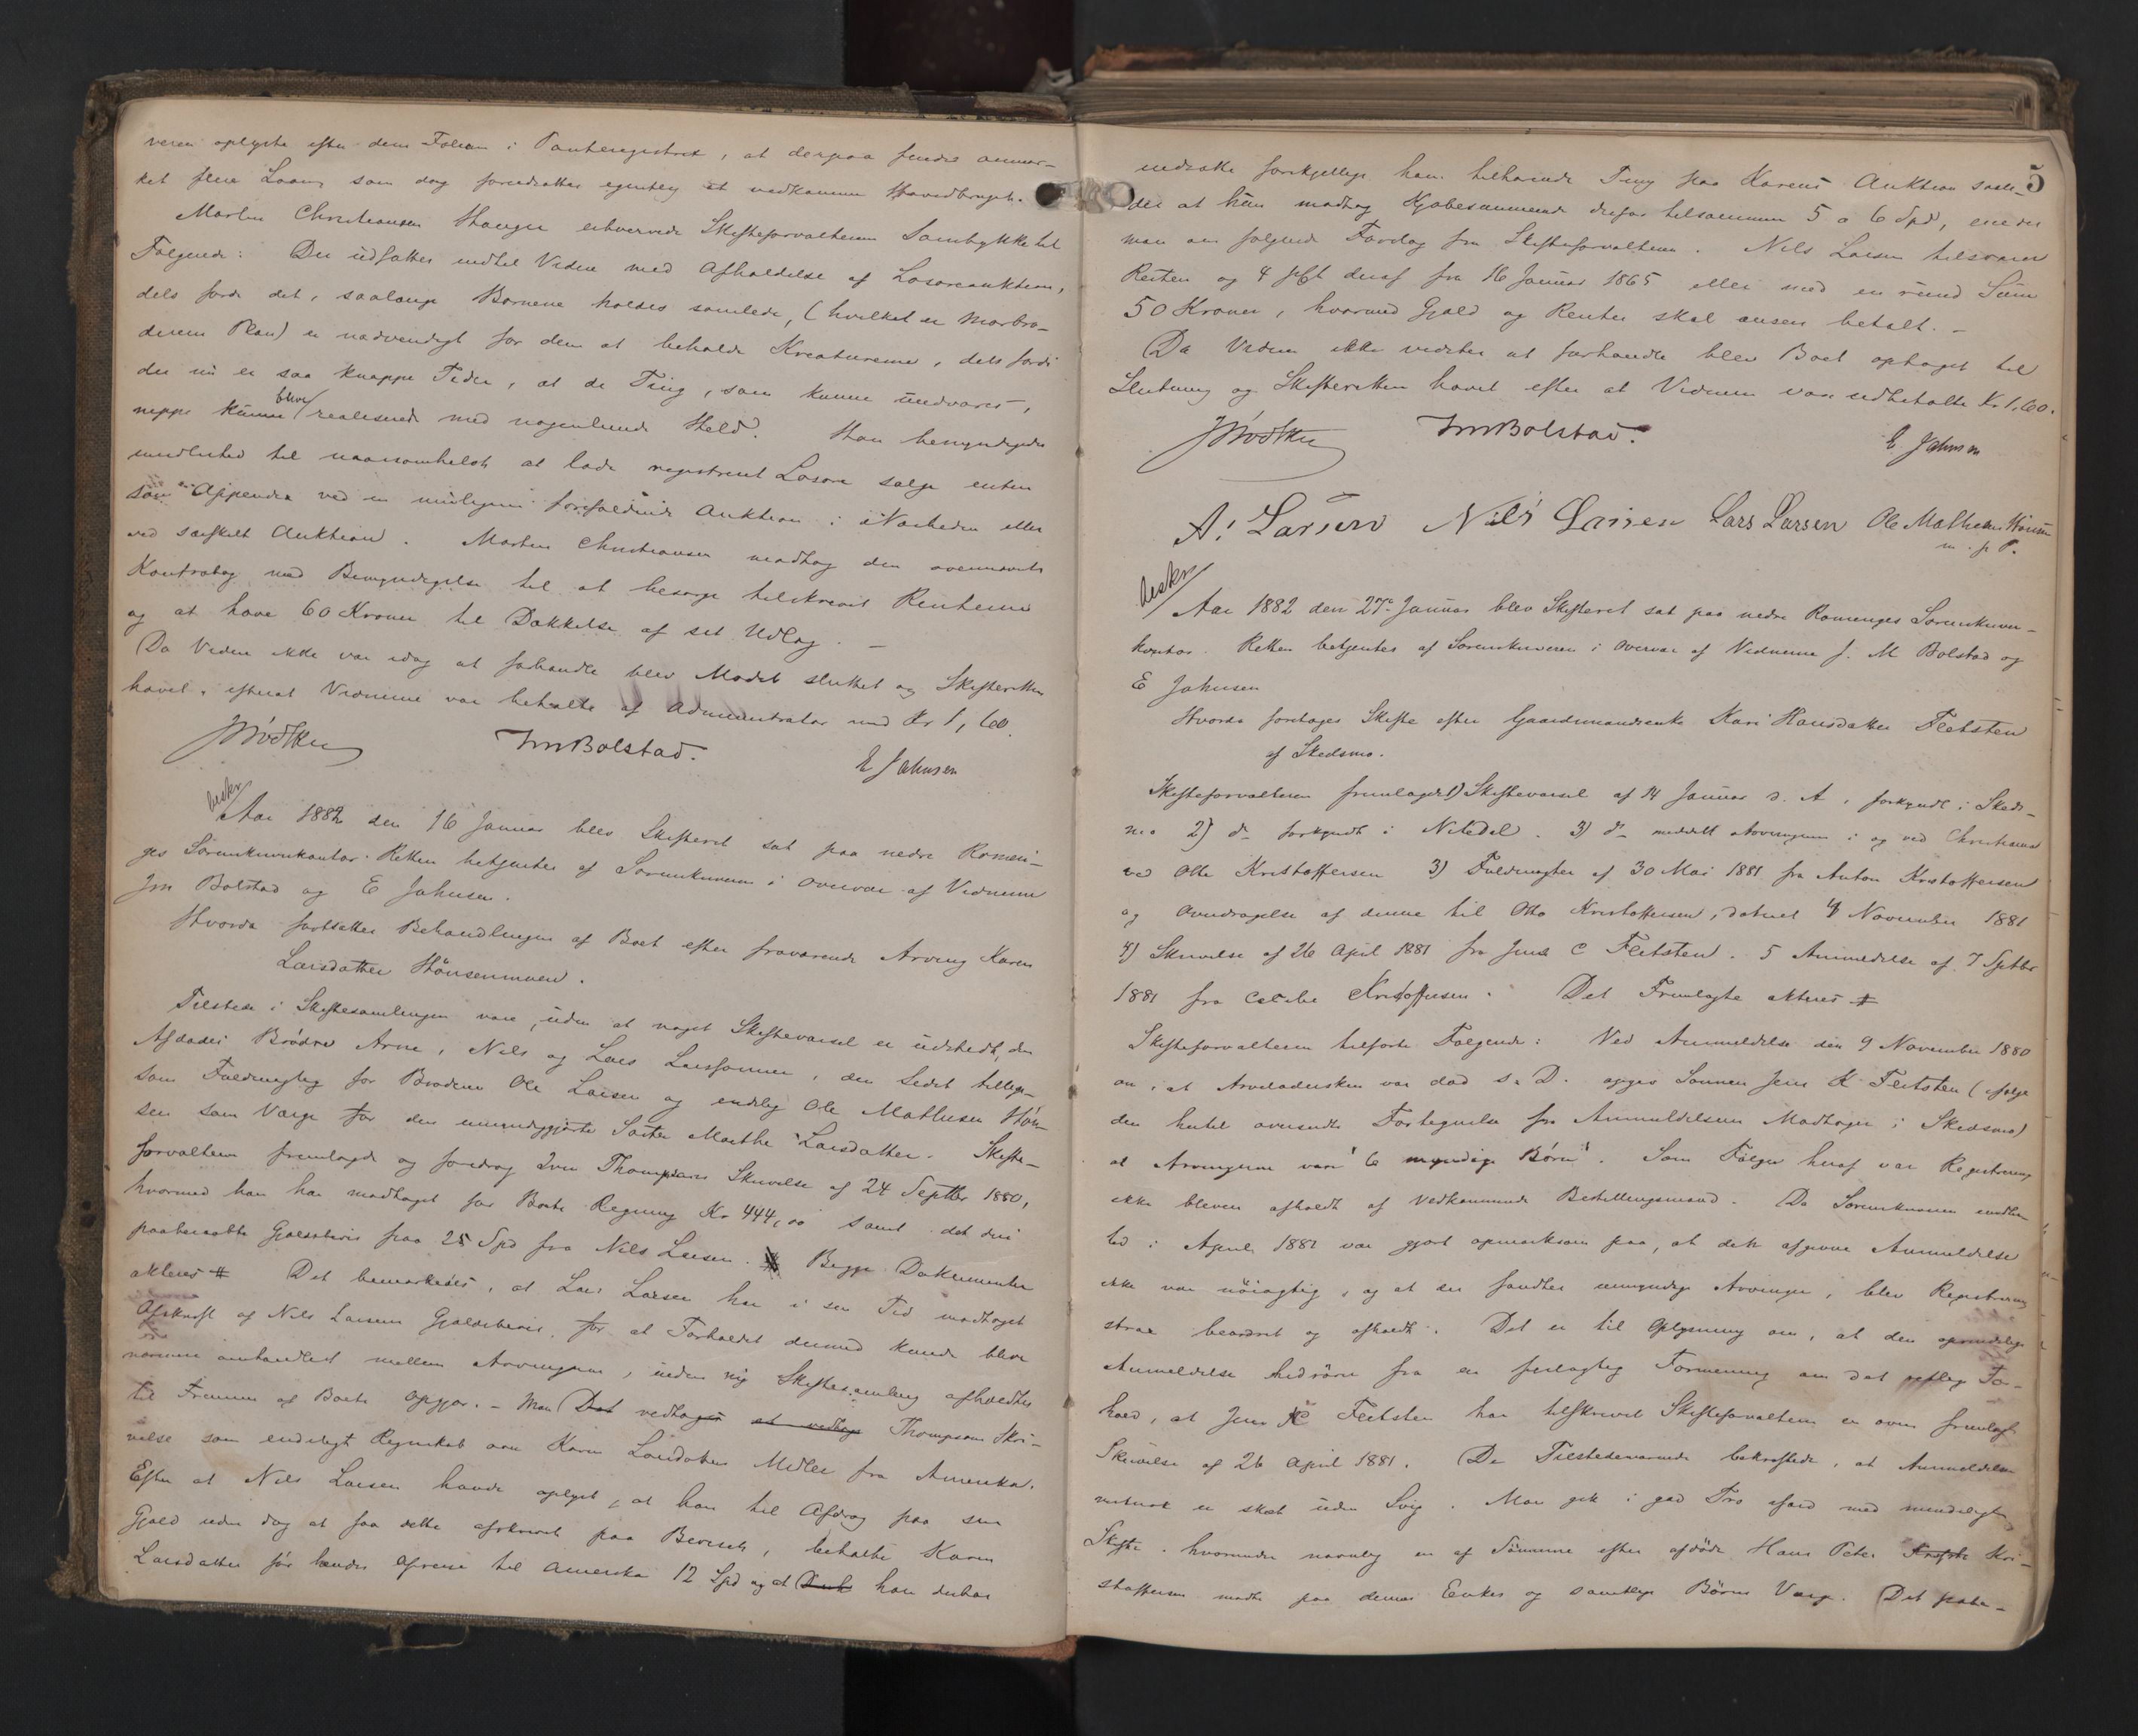 veren oplyste efter dens Folium i Panteregistret, at derpaa findes anmær-
ket flere Laan, som dog forudsættes egentlig at vedkomme Hovedbruget.
Martin Christiansen Hauger erhvervede Skifteforvalterens Samtykke til
Følgende: Der udsættes indtil Videre med Afholdelse af Løsøreauktion,
dels fordi det, saalænge Børnene holdes samlede, (hvilket er Morbro-
derens Plan) er nødvendigt for dem at beholde Kreaturene, dels fordi
der nu er saa knappe Tider, at de Ting, som kunne undværes,
neppe kunne blive realiserede med nogenlunde Held. Han bemyndigedes
imidlertid til naarsomhelst at lade registreret Løsøre sælge enten
som en Appendix ved en muligens forefaldende Auktion i Nærheden eller
ved særskilt Auktion. Martin Christiansen modtog den ovennævnte
Kontrabog med Bemyndigelse til at besørge tilskrevet Renterne
og at hæve 60 Kroner til Dækkelse af sit Udlæg. –
Da Videre ikke var idag at forhandle blev Mødet sluttet og Skifteretten
hævet, efterat Vidnerne var betalte af Administrator med Kr 1,60.
JMBolstad. E Johnsen
beskr
Aar 1882 den 16 Januar blev Skifteret sat paa nedre Romeri-
ges Sorenskriverkontor. Retten betjentes af Sorenskriveren i Overvær af Vidnerne
Jm Bolstad og E Johnsen.
Hvorda fortsattes Behandlingen af Boet efter fraværende Arving Karen
Larsdatter Hønsenmoen.
Tilstede i Skiftesamlingen vare, uden at noget Skiftevarsel er udstedt, den
Afdødes Brødre Arne, Nils og Lars Larssønner, den sidst tillige
som Fuldmægtig for Broderen Ole Larsen og endelig Ole Mathisen Høn-
sen som Værge for den umyndiggjorte Søster Marthe Larsdatter. Skifte-
forvalteren fremlagde og foredrog Iver Thompsons Skrivelse af 24 Septbr 1880,
hvormed han har modtaget for Boets Regning Kr 444,00 samt det deri
paaberaabte Gjældsbevis paa 25 Spd fra Nils Larsen. # Begge Dokumenter
akteres # Det bemærkedes, at Lars Larsen har i sin Tid modtaget
Afskrift af Nils Larsens Gjældsbevis, for at Forholdet dermed kunde blive
nærmere omhandlet mellem Arvingerne, inden ny Skiftesamling afholdtes
til Fremme af Boets Opgjør. – Man Det vedtoges at vedtage Thompsons Skri-
velse som endeligt Regnskab om Karen Larsdatters Midler fra Amerika.
Efter at Nils Larsen havde oplyst, at han til Afdrag paa sin
Gjæld uden dog at faa dette afskrevet paa Beviset, betalte Karen
Larsdatter før hendes Afreise til Amerika 12 Spd og at Dut han dertos
5
nedsatte forskjellige ham tilhørende Ting paa Karens Auktion saale-
des at hun modtog Kjøbesummene derfor tilsammen 5 a 6 Spd, enedes
man om følgende Forslag fra Skifteforvalteren. Nils Larsen tilsvarer
Resten og 4 pCt deraf fra 16 Januar 1865 eller med en rund Sum
50 Kroner, hvormed Gjæld og Renter skal ansees betalt. –
Da Videre ikke vidstes at forhandle blev Boet optaget til
Slutning og Skifteretten hævet efter at Vidnerne vare udbetalte Kr 1,60.
JMBolstad. E Johnsen
A: Larsen Nils Larsen Lars Larsen Ole Mathisen Hønsen
m. p. P.
beskr
Aar 1882 den 27de Januar blev Skifteret sat paa nedre Romeriges Sorenskriver-
kontor. Retten betjentes af Sorenskriveren i Overvær af Vidnerne J. M Bolstad og
E Johnsen
Hvorda foretoges Skifte efter Gaardmandsenke Kari Hansdatter Fletsten
af Skedsmo.
Skifteforvalteren fremlagde 1) Skiftevarsel af 14 Januar d. A, forkyndt i Skeds-
mo 2) do forkyndt i Nitedal. 3) do meddelt Arvingerne i og ved Christiania
ved Otto Kristoffersen 3) Fuldmagter af 30 Mai 1881 fra Anton Kristoffersen
og Overdragelse af denne til Otto Kristoffersen, dateret 4 November 1881
4) Skrivelse af 26 April 1881 fra Jens C Fletsten. 5 Anmeldelse af 7 Septbr
1881 fra Kristoffersen. Det Fremlagte akteres #
Skifteforvalteren tilførte Følgende: Ved Anmeldelse den 9 November 1880
om, at Arveladersken var død s. D. opgav Sønnen Jens K Fletsten (ifølge
den hertil oversendte Fortegnelse fra Anmeldelsens Modtager i Skedsmo)
at Arvingerne vare "6 myndige Børn". Som Følge heraf var Registrering
ikke bleven afholdt af vedkommende Bestillingsmand. Da Sorenskriveren imidler-
tid i April 1881 var gjort opmærksom paa, at den afgivne Anmeldelse
ikke var nøiagtig, og at der fandtes umyndige Arvinger, blev Registrering
strax beordret og afholdt. Det er til Oplysning om, at den oprindelige
Anmeldelse hidrører fra en feilagtig Formening om det retlige For-
hold, at Jens C Fletsten har tilskrevet Skifteforvalteren en oven fremlagt
Skrivelse af 26 April 1881. De Tilstedeværende bekræftede, at Anmeldelsen
er skeet uden Svig. Man gik i god Tro afsted med mindeligt
Skifte. hvorunder navnlig en af Sønnerne efter afdøde Hans Peter Kristof Kri-
stoffersen mødte paa dennes Enkes og samtlige Børns Vegne. Det paabe-